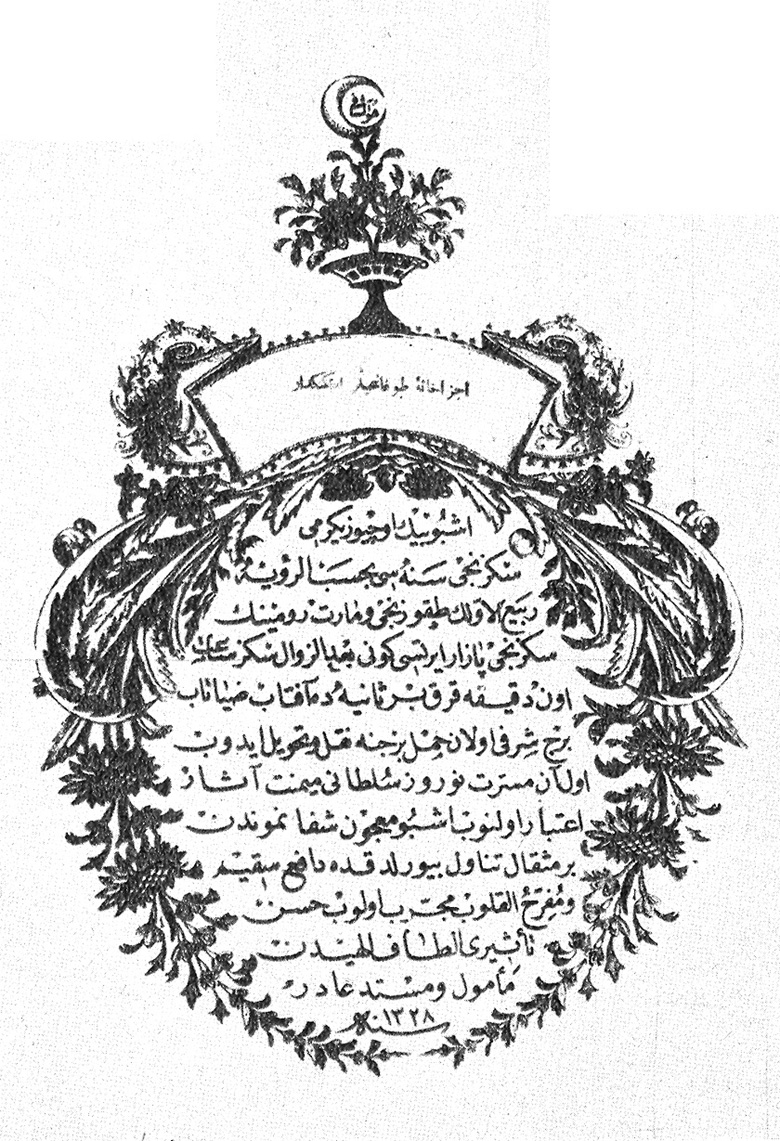 اجزاخانهٔ طوغانجیلر اسکدار
اشبو بیك اوچیوز یكرمی
سكزنجی سنه سی بحسب الرؤیه
ربیع الاولك طقوزنجی و مارت رومینك
سكزنجی پازار ایرتسی كونی بعد الزوال سكز ساعت
اون دقیقه قرق بر ثانیه ده آفتاب ضیاتاب
برج شرفی اولان حمل برجنه نقل و تحویل ایدوب
اول آن مسرت نوروز سلطانی میمنت آثار
اعتبار اولنوب اشبو معجون شفا نموندن
بر مثقال تناول بیورلدقده دافع سقیم
و مفرح القلوب مجرب اولوب حسن
تأثیری الطاف الهیدن
مأمول و مستدعادر
سنه ۱۳۲۸